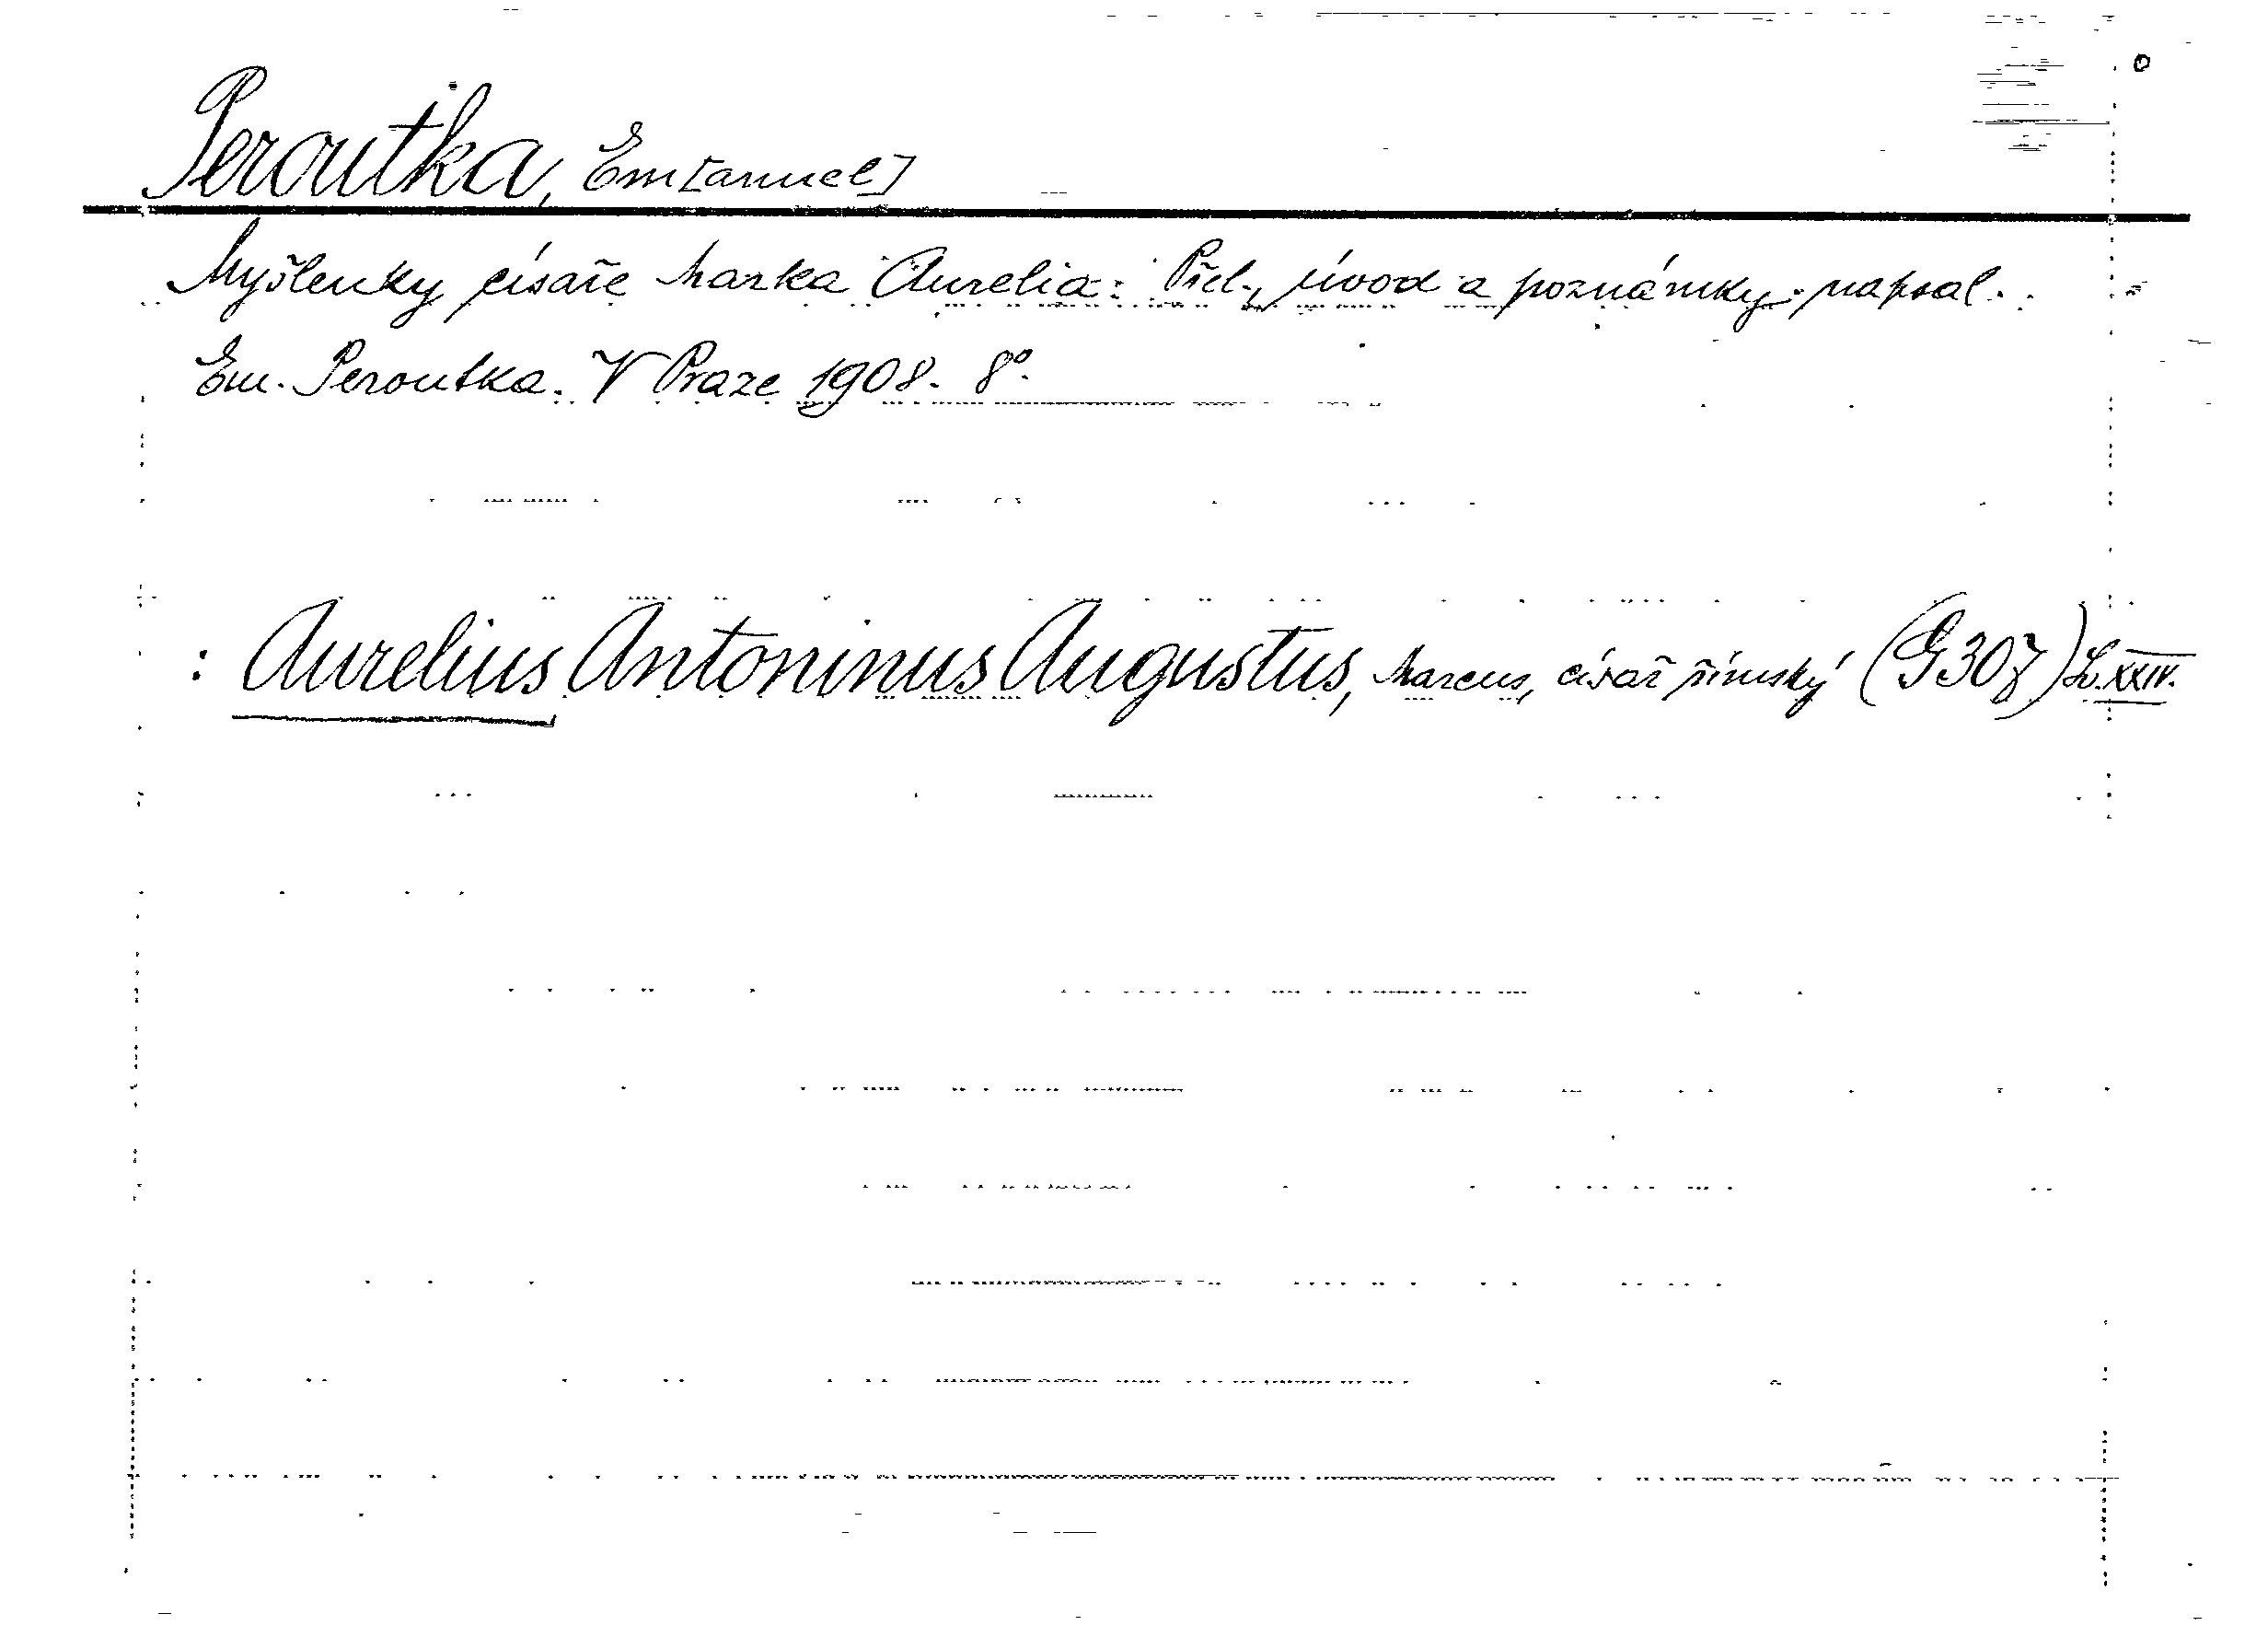 Peroutka, Em[anuel]
Myšlenky císaře Marka Aurelia. Přel., úvod a poznámky napsal
Em. Peroutka. V Praze 1908. 8°.
: Aurelius Antoninus Augustus, Marcus, císař římský (G307) L.XXIV.